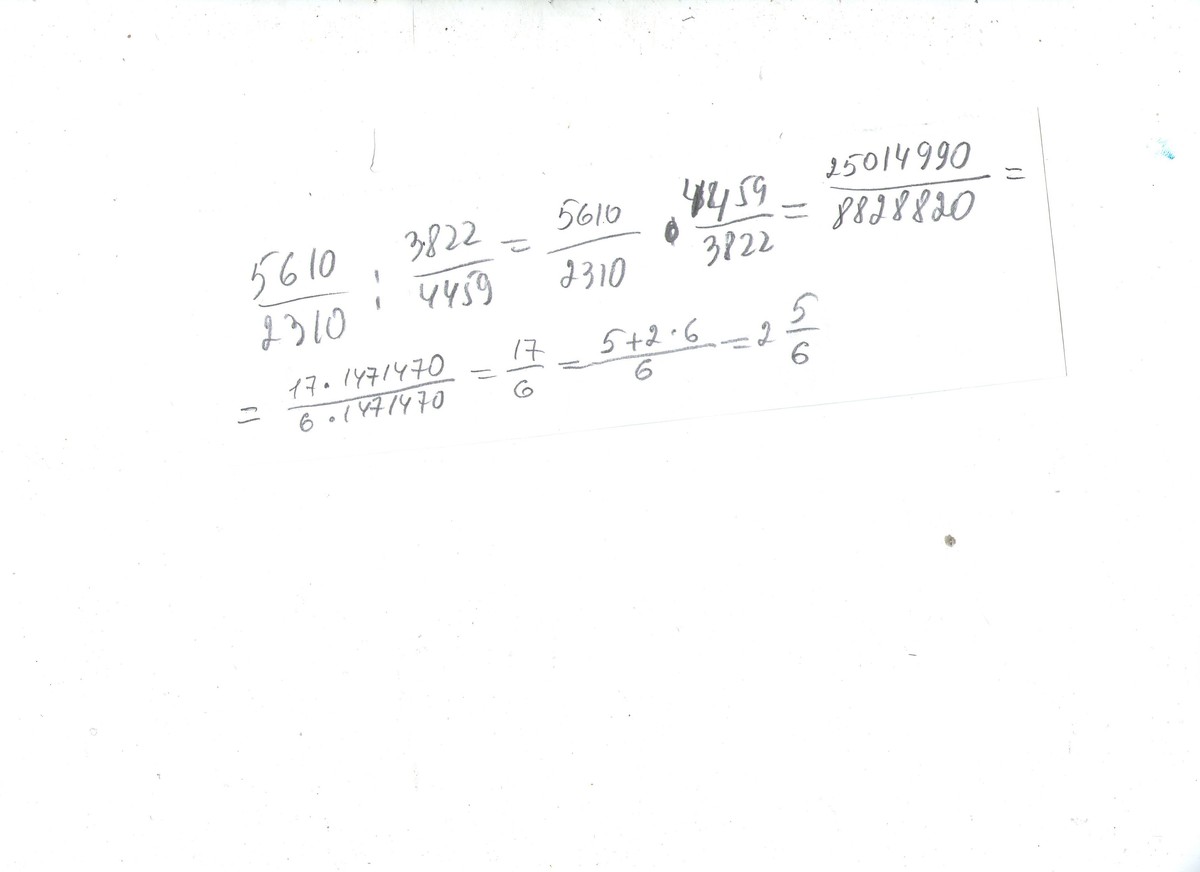 5610/2310 : 3822/4459 = 5610/2310 · 4459/3822 = 25014990/8828820 =
= 17·1471470/6·1471470 = 17/6 = 5+2·6/6 = 2 5/6